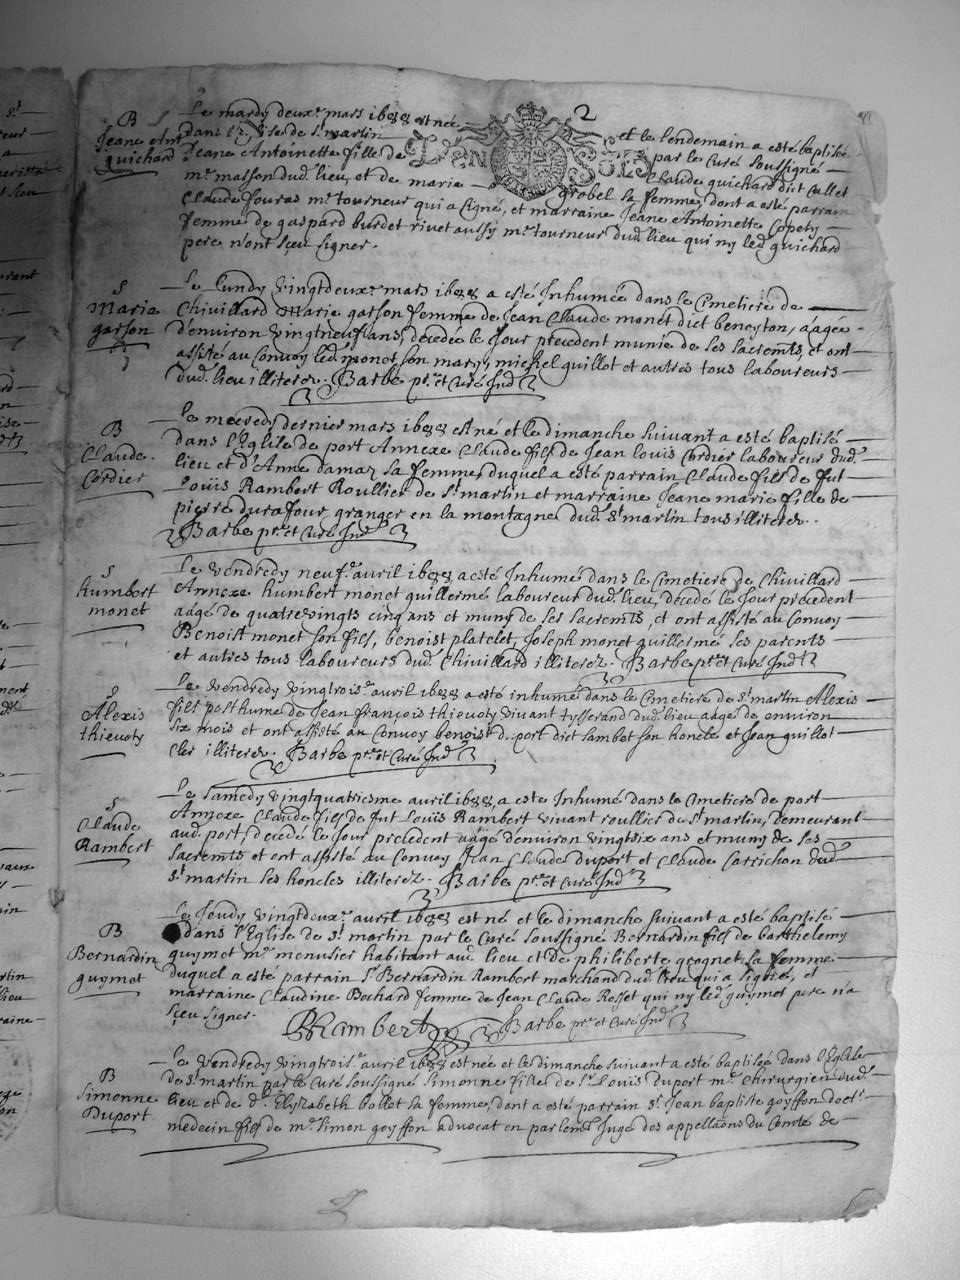 2
B
Jeane Ant
guichard
Le mardy deuxe. mars 1688 est née et le lendemain a esté baptisée
dans l'Eglise de st. martin par le Curé soussigné
Jeane Antoinette fille de Claude guichard dict Collet
DEN 8 S
me. masson dud. lieu, et de marie grobel sa femme, dont a esté parrain
Claude fouras me. tourneur qui a signé, et marraine Jeane Antoinette Copety
femme de gaspard burdet rivet aussy me. tourneur dud. lieu qui ny led. guichard
pere n'ont sçeu signer.
S
Maria
garson
Le Lundy vingtdeuxe. mars 1688 a esté Inhumée dans le Cimetiere de
Chivillard Maria garson femme de Jean Claude monet dict beneyton, aagée
d'environ vingtneuf ans, decedée le Jour precedent munie de ses sacremts, et ont
assisté au Convoy led. monet son mary, michel guillot et autres tous laboureurs
dud. lieu illiterez. Barbe ptre et Curé Ind
B
Claude
Cordier
Le mecredy dernier mars 1688 est né et le dimanche suivant a esté baptisé
dans l'Eglise de port Annexe Claude fils de Jean Louis Cordier laboureur dud.
lieu et d'Anne damaz sa femme, duquel a esté parrain Claude fils de fut
Loüis Rambert Roullier de st. martin et marraine Jeane marie fille de
pierre Durafour granger en la montagne dud. st. martin tous illiterez.
Barbe ptre et Curé Ind
S
humbert
monet
Le vendredy neufe. avril 1688 a esté Inhumé dans le Cimetiere de Chivillard
Annexe humbert monet guillermé laboureur dud. lieu, decedé le Jour precedent
aagé de quatrevingts cinq ans et muny de ses sacremts, et ont assisté au Convoy
Benoist monet son fils, benoist platelet, Joseph monet guillermé ses parents
et autres tous laboureurs dud. Chivillard illiterez. Barbe ptre et Curé Ind
S
Alexis
thievoty
Le vendredy vingtroise. avril 1688 a esté inhumé dans le Cimetiere de st. martin Alexis
fils posthume de Jean françois thievoty vivant tysserand dud. lieu aagé de environ
six mois et ont assisté au Convoy benoist d. port dict Lambet son honcle et Jean guillot
Cler illiterez. Barbe ptre et Curé Ind
S
Claude
Rambert
Le samedy vingtquatriesme avril 1688, a esté Inhumé dans le Cimetiere de port
Annexe Claude fils de fut Louis Rambert vivant roullier de st. martin, demeurant
aud. port, decedé le Jour precedent aagé d'environ vingtsix ans et muny de ses
sacremts et ont assisté au Convoy Jean Claude duport et Claude Carrichon dud.
st. martin ses honcles illiterez. Barbe ptre et Curé Ind
B
Bernardin
guymot
Le Jeudy vingtdeuxe. avril 1688 est né et le dimanche suivant a esté baptisé
dans l'Eglise de st. martin par le Curé soussigné Bernardin fils de barthelemy
guymot me. menusier habitant aud. lieu et de philiberte geognet sa femme
duquel a esté parrain sr. Bernardin Rambert marchand dud. lieu qui a signé, et
marraine Claudine Bochard femme de Jean Claude Rosset qui ny led. guymot pere n'a
sçeu signer.
BRambert Barbe ptre et Curé Ind
B
Simonne
Duport
Le vendredy vingtroise. avril 1688 est née et le dimanche suivant a esté baptisée dans l'Eglise
de st. martin par le Curé soussigné Simonne fille de sr. Louis duport me. chirurgien dud.
lieu et de de. Elyzabeth bollet sa femme, dont a esté parrain sr. Jean baptiste goyffon doctr.
medecin fils de me. simon goyffon advocat en parlemt. Juge des appellaons du Comté de